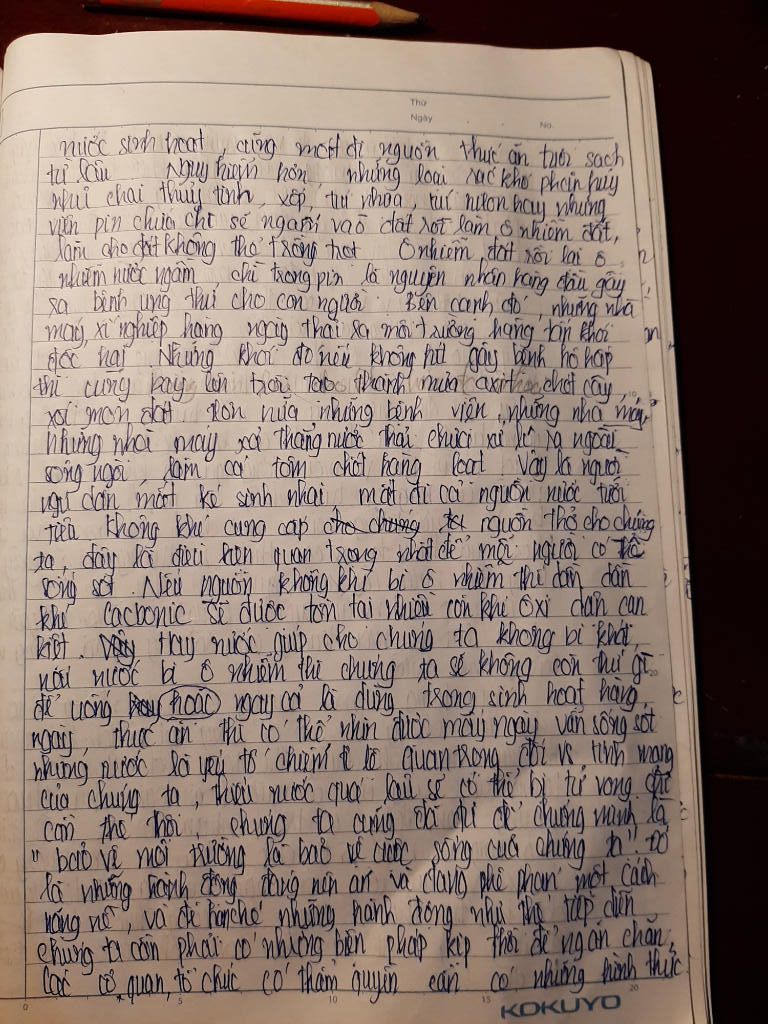 Thứ
Ngày
No.
nước sinh hoạt, cũng mất đi nguồn thức ăn tươi sạch
từ lâu Nguy hiểm hơn những loại rác khó phân hủy
như chai thủy tinh, xốp, túi nhựa, túi nilon hay những
viên pin chứa chì sẽ ngấm vào đất rồi làm ô nhiễm đất,
làm cho đất không thể trồng trọt Ô nhiễm đất rồi lại ô
nhiễm nước ngầm, chì trong pin là nguyên nhân hàng đầu gây
ra bệnh ung thư cho con người. Bên cạnh đó, những nhà
máy, xí nghiệp hàng ngày thải ra môi trường hàng tấn khói
độc hại. Những khói đó nếu không hít gây bệnh hô hấp
thì cũng bay lên trời tạo thành mưa axit chết cây,
xói mòn đất Hơn nữa những bệnh viện, những nhà máy
những nhà máy xả thẳng nước thải chưa xử lí ra ngoài
sông ngòi, làm cá tôm chết hàng loạt Vậy là người
ngư dân mất kế sinh nhai, mất đi cả nguồn nước tưới
tiêu Không khí cung cấp cho chúng ta nguồn thở cho chúng
ta, đây là điều kiện quan trọng nhất để mỗi người có thể
sống sót. Nếu nguồn không khí bị ô nhiễm thì dần dần
khí cacbonic sẽ được tồn tại nhiều còn khí ôxi dần cạn
kiệt. Vậy Hay nước giúp cho chúng ta không bị khát,
nếu nước bị ô nhiễm thì chúng ta sẽ không còn thứ gì
để uống hay hoặc ngay cả là dùng trong sinh hoạt hàng
ngày, thức ăn thì có thể nhịn được mấy ngày vẫn sống sót
nhưng nước là yếu tố chiếm tỉ lệ quan trọng đối vs tính mạng
của chúng ta, thiếu nước quá lâu sẽ có thể bị tử vong chỉ
cần thế thôi, chúng ta cũng đã đủ để chứng minh là
"bảo vệ môi trường là bảo vệ cuộc sống của chúng ta". Đó
là những hành động đáng nên án và đáng phê phán một cách
nặng nề, và để hạn chế những hành động như thế tiếp diễn
chúng ta cần phải có những biện pháp kịp thời để ngăn chặn,
các cơ quan, tổ chức có thẩm quyền cần có những hình thức
0 5 10 15 20
KOKUYO